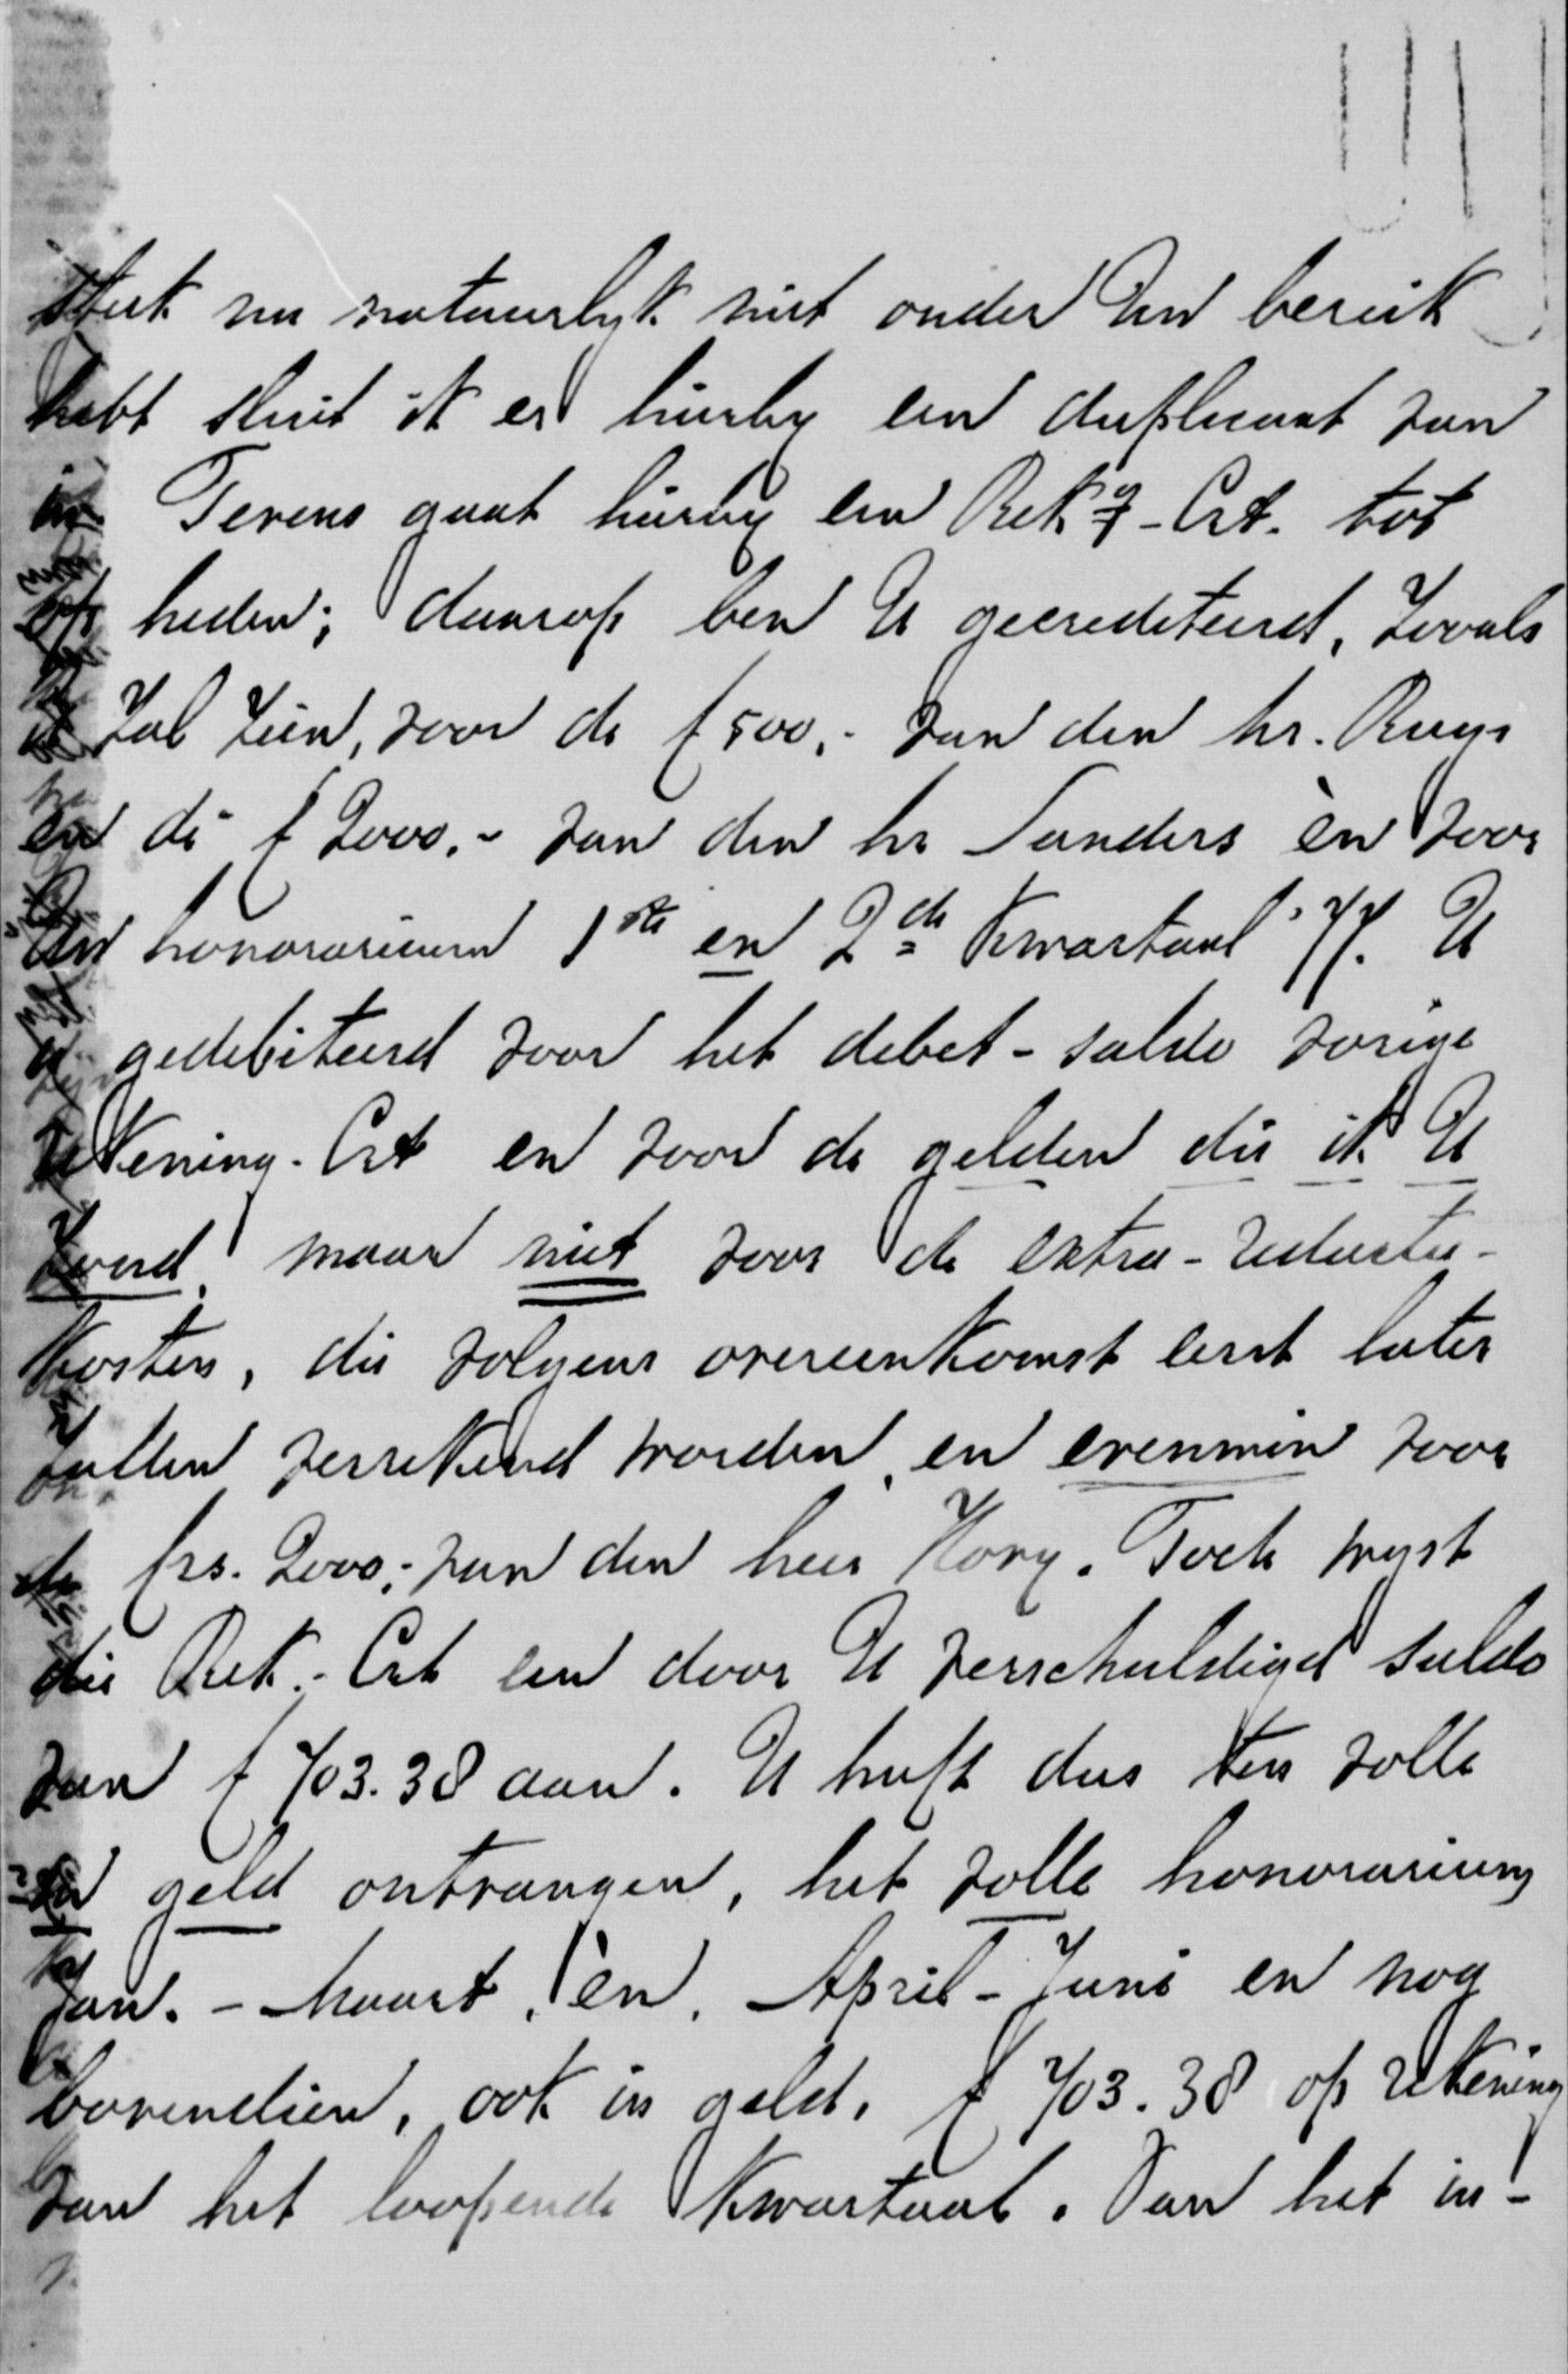 stuk nu natuurlyk niet onder Uw bereik
hebt sluit ik er hierby een duplicaat van
in Tevens gaat hierby een Rekg-Crt. tot
heden; daarop ben U gecrediteerd, zooals
U zal zien, voor de f 500,- van den hr. Ruys
en de f 2000.- van den hr Sanders èn voor
Uw honorarium 1ste en 2de Kwartaal '77. U
gedebiteerd voor het debet-saldo vorige
rekening-Crt en voor de gelden die ik U
zond, maar niet voor de extra-reductie-
Kosten, die volgens overeenkomst eerst later
zullen verrekend worden, en evenmin voor
de frs. 2000,- van den heer Kory. Toch wyst
die Rek.-Crt een door U verschuldigd saldo
van f 703.38 aan. U heeft dus ten volle
in geld ontvangen, het volle honorarium
Jan. - Maart, èn, April-Juni en nog
bovendien, ook in geld, f 703.38 op rekening
van het loopende Kwartaal. Van het in-